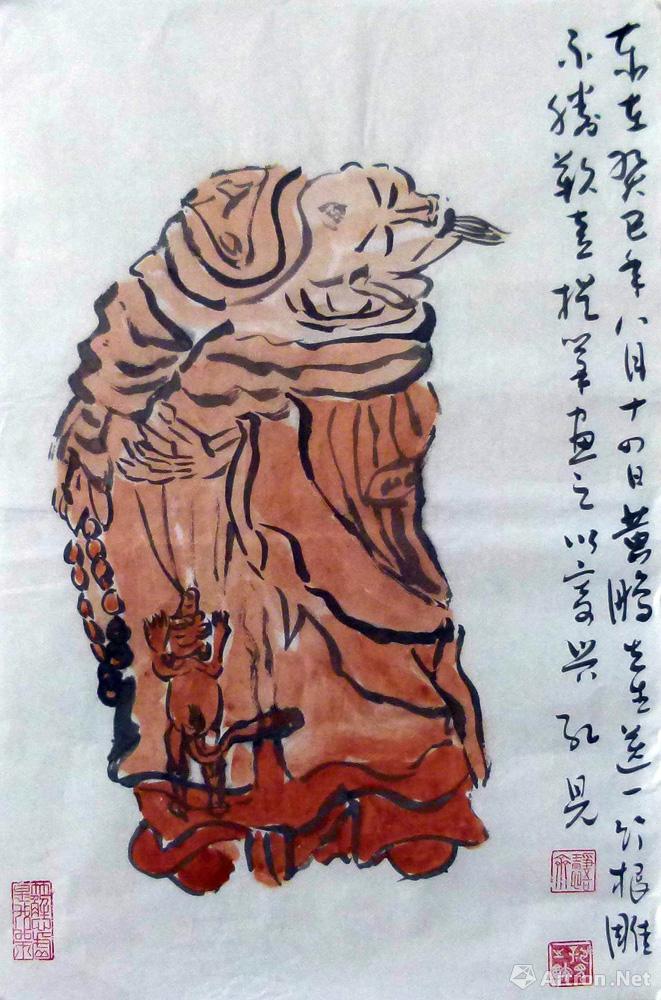 东在癸巳年八月十四日黄鹏先生送一竹根雕
不胜欢喜捉笔画之以寄兴 孔见
Artron.Net